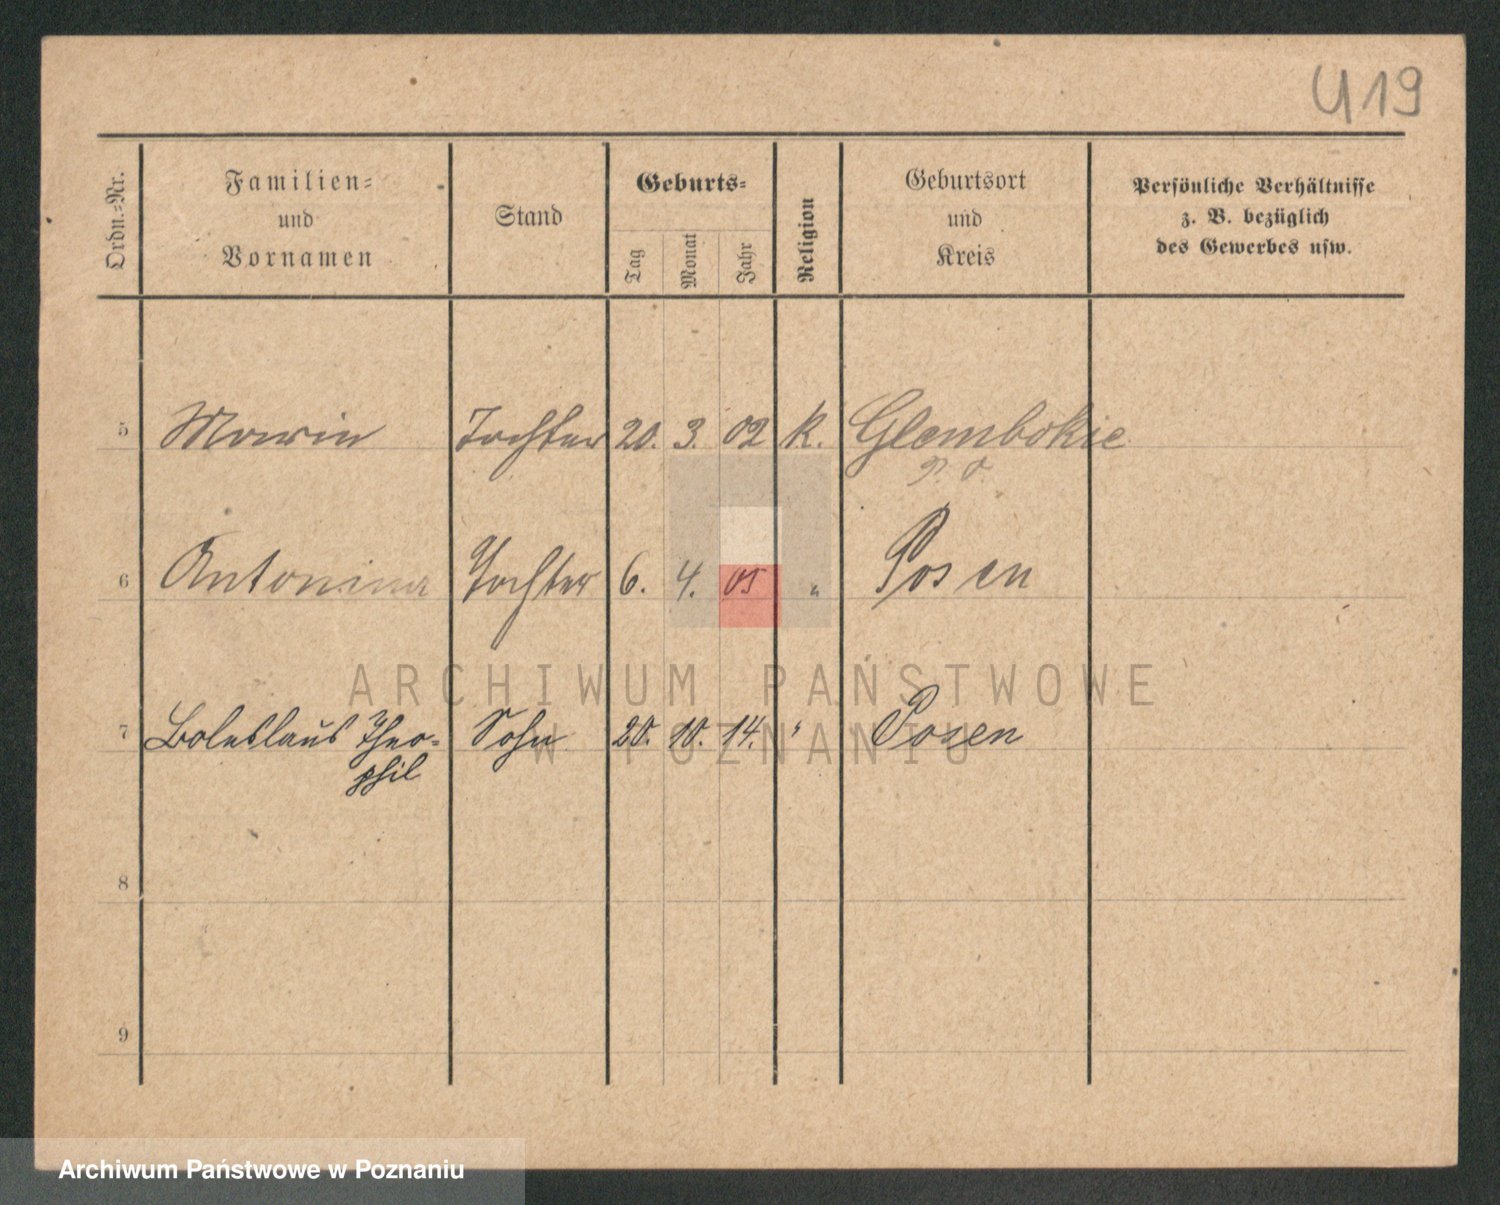 419
Ordn.-Nr.
Familien-
und
Vornamen
Stand
Geburts-
Tag
Monat
Jahr
Religion
Geburtsort
und
Kreis
Persönliche Verhältnisse
z. B. bezüglich
des Gewerbes usw.
5 Maria Tochter 20. 3. 02 K. Glembokie
6 Antonina Tochter 6. 4. 05 " Posen
ARCHIWUM PAŃSTWOWE
W POZNANIU
7 Boleslaus Theo- Sohn 20. 10. 14. " Posen
phil
8
9
Archiwum Państwowe w Poznaniu